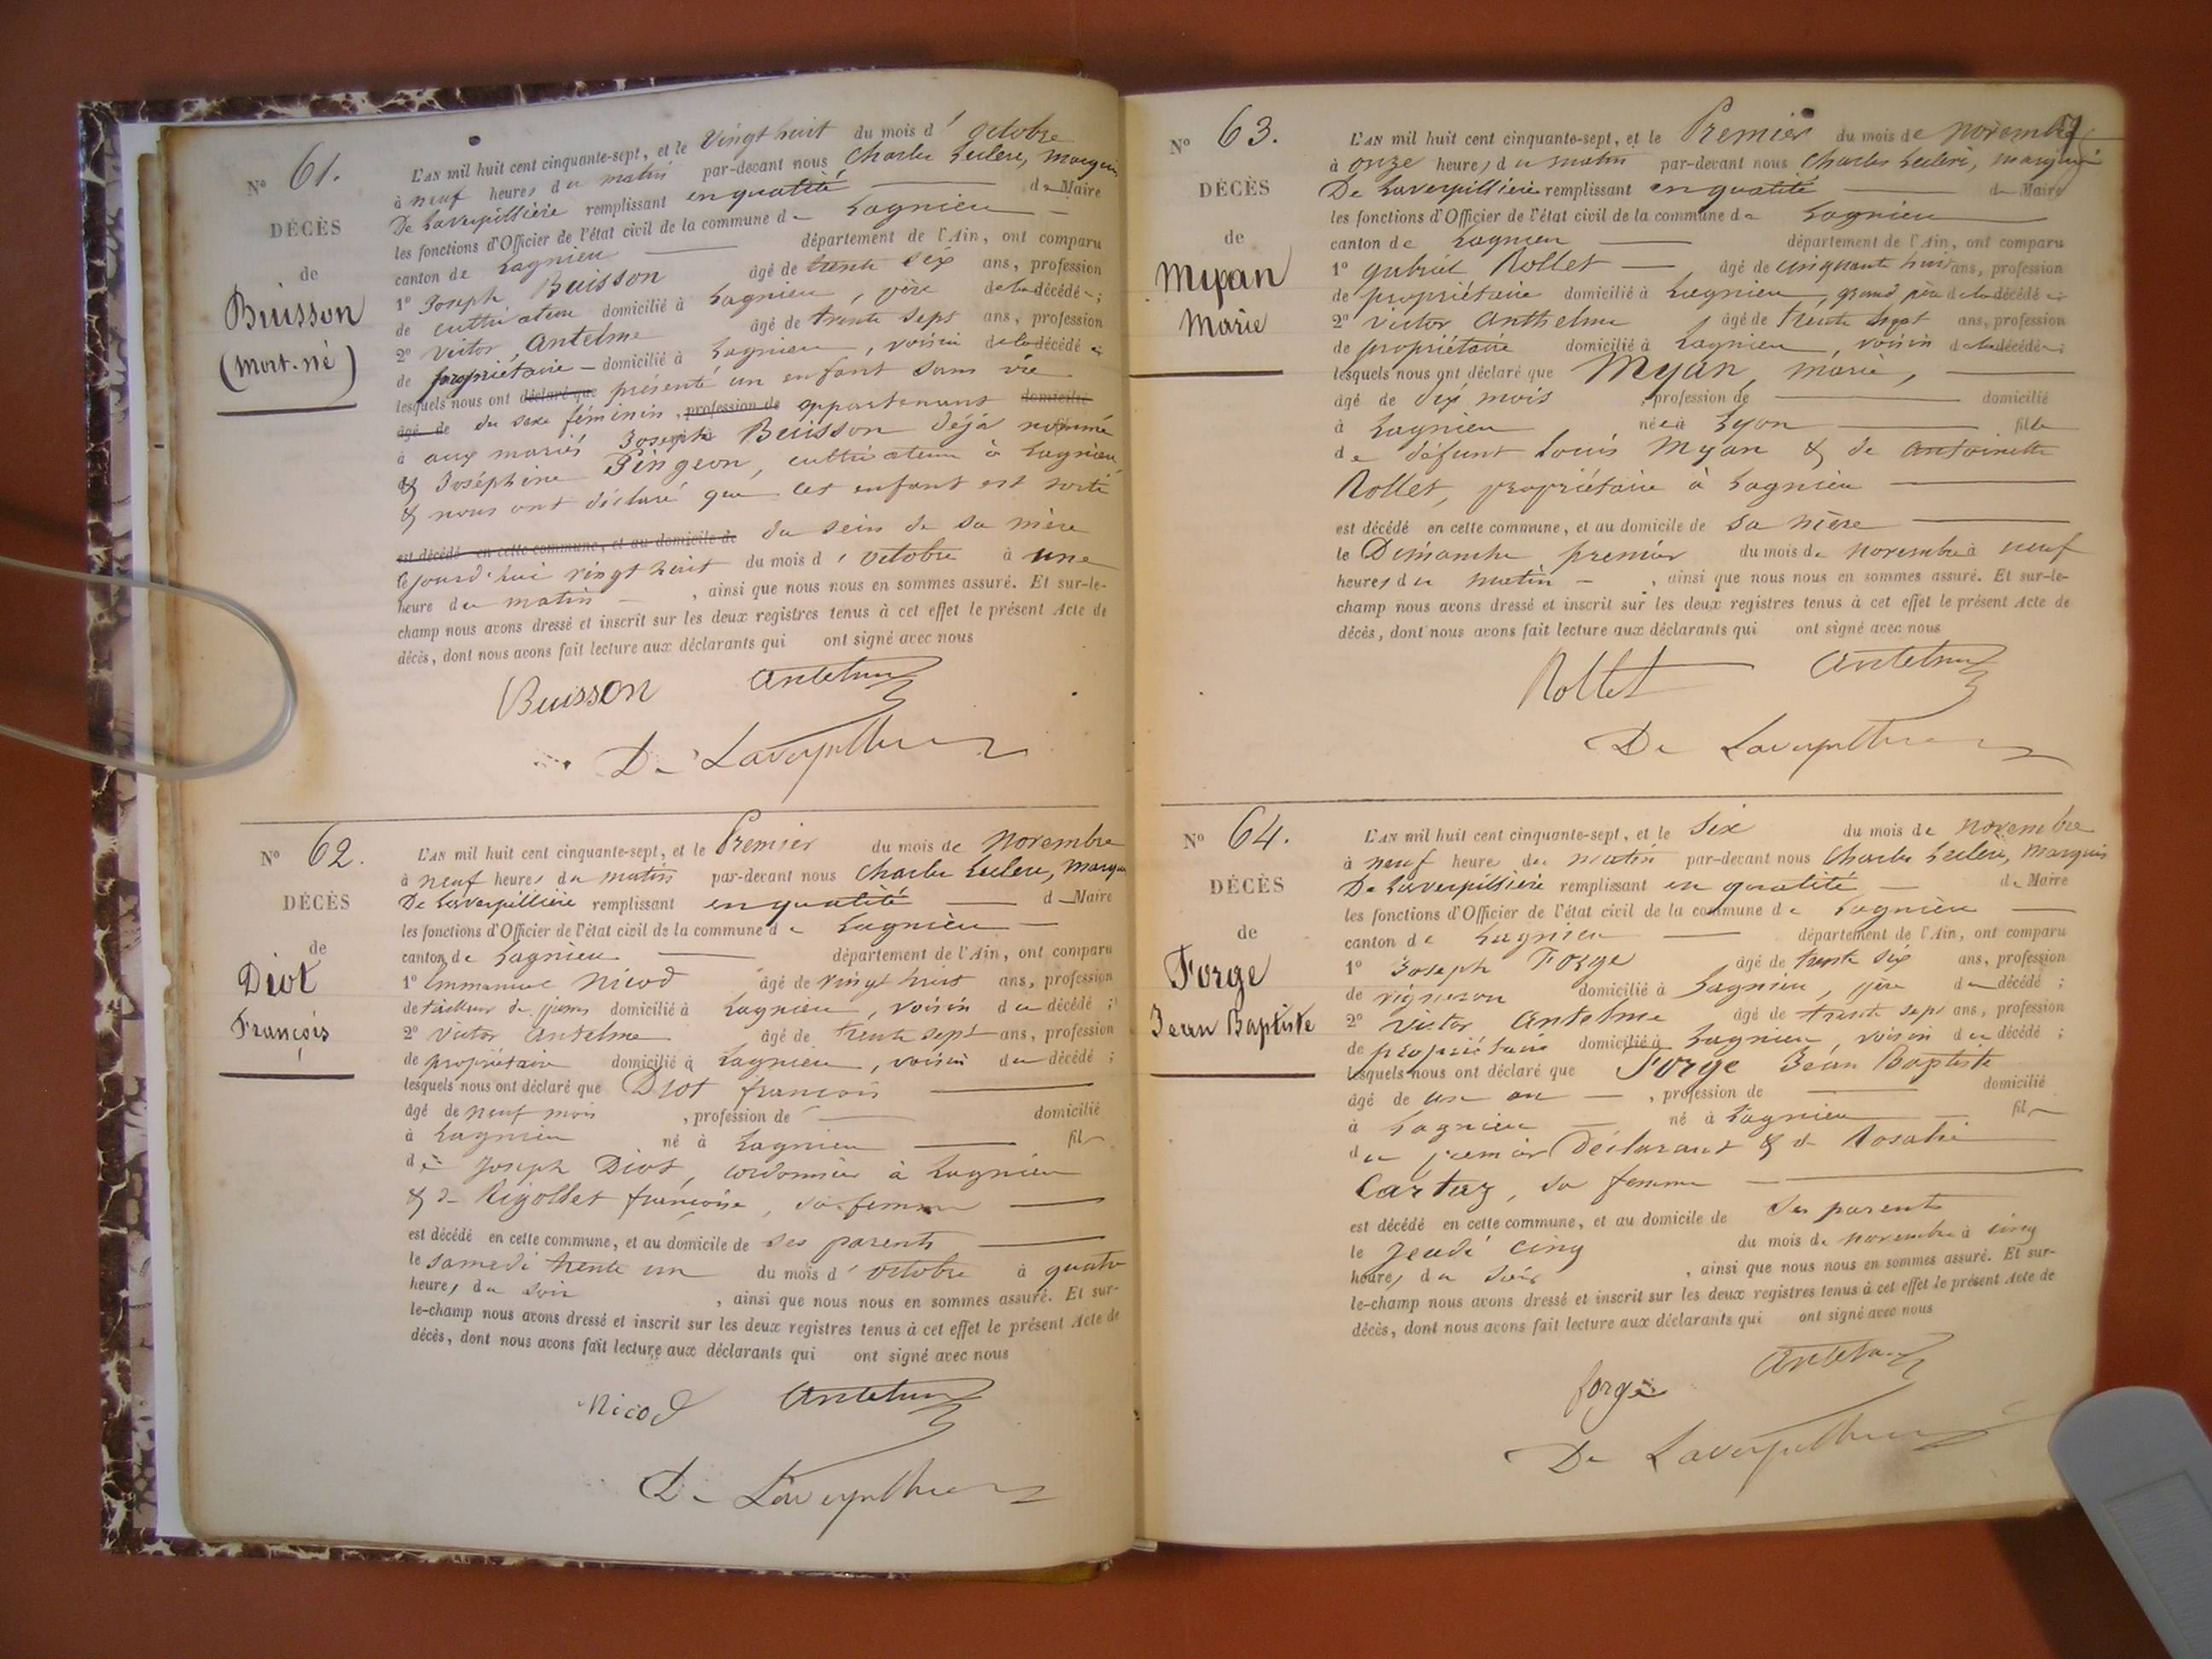 N° 61.
DÉCÈS
de
Buisson
(Mort-né)
L'AN mil huit cent cinquante-sept, et le Vingt huit du mois d' octobre
à neuf heures du matin par-devant nous Charles Leclerc, Marquis
De Laverpillière remplissant en qualité de Maire
les fonctions d'Officier de l'état civil de la commune de Lagnieu
canton de Lagnieu département de l'Ain, ont comparu
1° Joseph Buisson âgé de trente six ans, profession
de cultivateur domicilié à Lagnieu, père de la décédée;
2° Victor Antelme âgé de trente sept ans, profession
de propriétaire domicilié à Lagnieu, voisin de la décédée;
lesquels nous ont déclaré que présenté un enfant sans vie
âgé de du sexe féminin, profession de appartenant domicilié
à aux mariés Joseph Buisson déjà nommé
& Joséphine Pingeon, cultivateur à Lagnieu
& nous ont déclaré que cet enfant est sorti
est décédé en cette commune, et au domicile de du sein de sa mère
cejourd'hui vingt huit du mois d'octobre à une
heure du matin, ainsi que nous nous en sommes assuré. Et sur-le-
champ nous avons dressé et inscrit sur les deux registres tenus à cet effet le présent Acte de
décès, dont nous avons fait lecture aux déclarants qui ont signé avec nous
Buisson Antelme
De Laverpillière
N° 62.
DÉCÈS
de
Diot
François
L'AN mil huit cent cinquante-sept, et le Premier du mois de Novembre
à neuf heures du matin par-devant nous Charles Leclerc, Marquis
De Laverpillière remplissant en qualité d Maire
les fonctions d'Officier de l'état civil de la commune de Lagnieu
canton de Lagnieu département de l'Ain, ont comparu
1° Emmanuel Nicod âgé de vingt huit ans, profession
de tailleur de pierres domicilié à Lagnieu, voisin du décédé;
2° Victor Antelme âgé de trente sept ans, profession
de propriétaire domicilié à Lagnieu, voisin du décédé;
lesquels nous ont déclaré que Diot françois
âgé de neuf mois, profession de domicilié
à Lagnieu né à Lagnieu fils
de Joseph Diot, cordonnier à Lagnieu
& de Rigollet françoise, sa femme
est décédé en cette commune, et au domicile de ses parents
le samedi trente un du mois d'octobre à quatre
heures du soir, ainsi que nous nous en sommes assuré. Et sur-
le-champ nous avons dressé et inscrit sur les deux registres tenus à cet effet le présent Acte de
décès, dont nous avons fait lecture aux déclarants qui ont signé avec nous
Nicod Antelme
De Laverpillière
N° 63.
DÉCÈS
de
Myan
Marie
L'AN mil huit cent cinquante-sept, et le Premier du mois de novembre
à onze heures du matin par-devant nous Charles Leclerc, marquis
De Laverpillière remplissant en qualité de Maire
les fonctions d'Officier de l'état civil de la commune de Lagnieu
canton de Lagnieu département de l'Ain, ont comparu
1° gabriel Rollet âgé de cinquante huit ans, profession
de propriétaire domicilié à Lagnieu, grand père de la décédée
2° Victor Anthelme âgé de trente sept ans, profession
de propriétaire domicilié à Lagnieu, voisin de la décédée;
lesquels nous ont déclaré que Myan, marie,
âgé de dix mois, profession de domicilié
à Lagnieu née à Lyon fille
de défunt Louis Myan & de Antoinette
Rollet, propriétaire à Lagnieu
est décédé en cette commune, et au domicile de sa mère
le Dimanche premier du mois de novembre à neuf
heures du matin, ainsi que nous nous en sommes assuré. Et sur-le-
champ nous avons dressé et inscrit sur les deux registres tenus à cet effet le présent Acte de
décès, dont nous avons fait lecture aux déclarants qui ont signé avec nous
Rollet Antelme
De Laverpillière
N° 64.
DÉCÈS
de
Forge
Jean Baptiste
L'AN mil huit cent cinquante-sept, et le Six du mois de novembre
à neuf heures du matin par-devant nous Charles Leclerc, Marquis
De Laverpillière remplissant en qualité de Maire
les fonctions d'Officier de l'état civil de la commune de Lagnieu
canton de Lagnieu département de l'Ain, ont comparu
1° Joseph Forge âgé de trente six ans, profession
de vigneron domicilié à Lagnieu, père du décédé;
2° Victor Antelme âgé de trente sept ans, profession
de propriétaire domicilié à Lagnieu, voisin du décédé;
lesquels nous ont déclaré que Forge Jean Baptiste
âgé de un an, profession de domicilié
à Lagnieu né à Lagnieu fils
du premier Déclarant & de Rosalie
Cartaz, sa femme
est décédé en cette commune, et au domicile de ses parents
le Jeudi cinq du mois de novembre à cinq
heures du soir, ainsi que nous nous en sommes assuré. Et sur-
le-champ nous avons dressé et inscrit sur les deux registres tenus à cet effet le présent Acte de
décès, dont nous avons fait lecture aux déclarants qui ont signé avec nous
forge Antelme
De Laverpillière